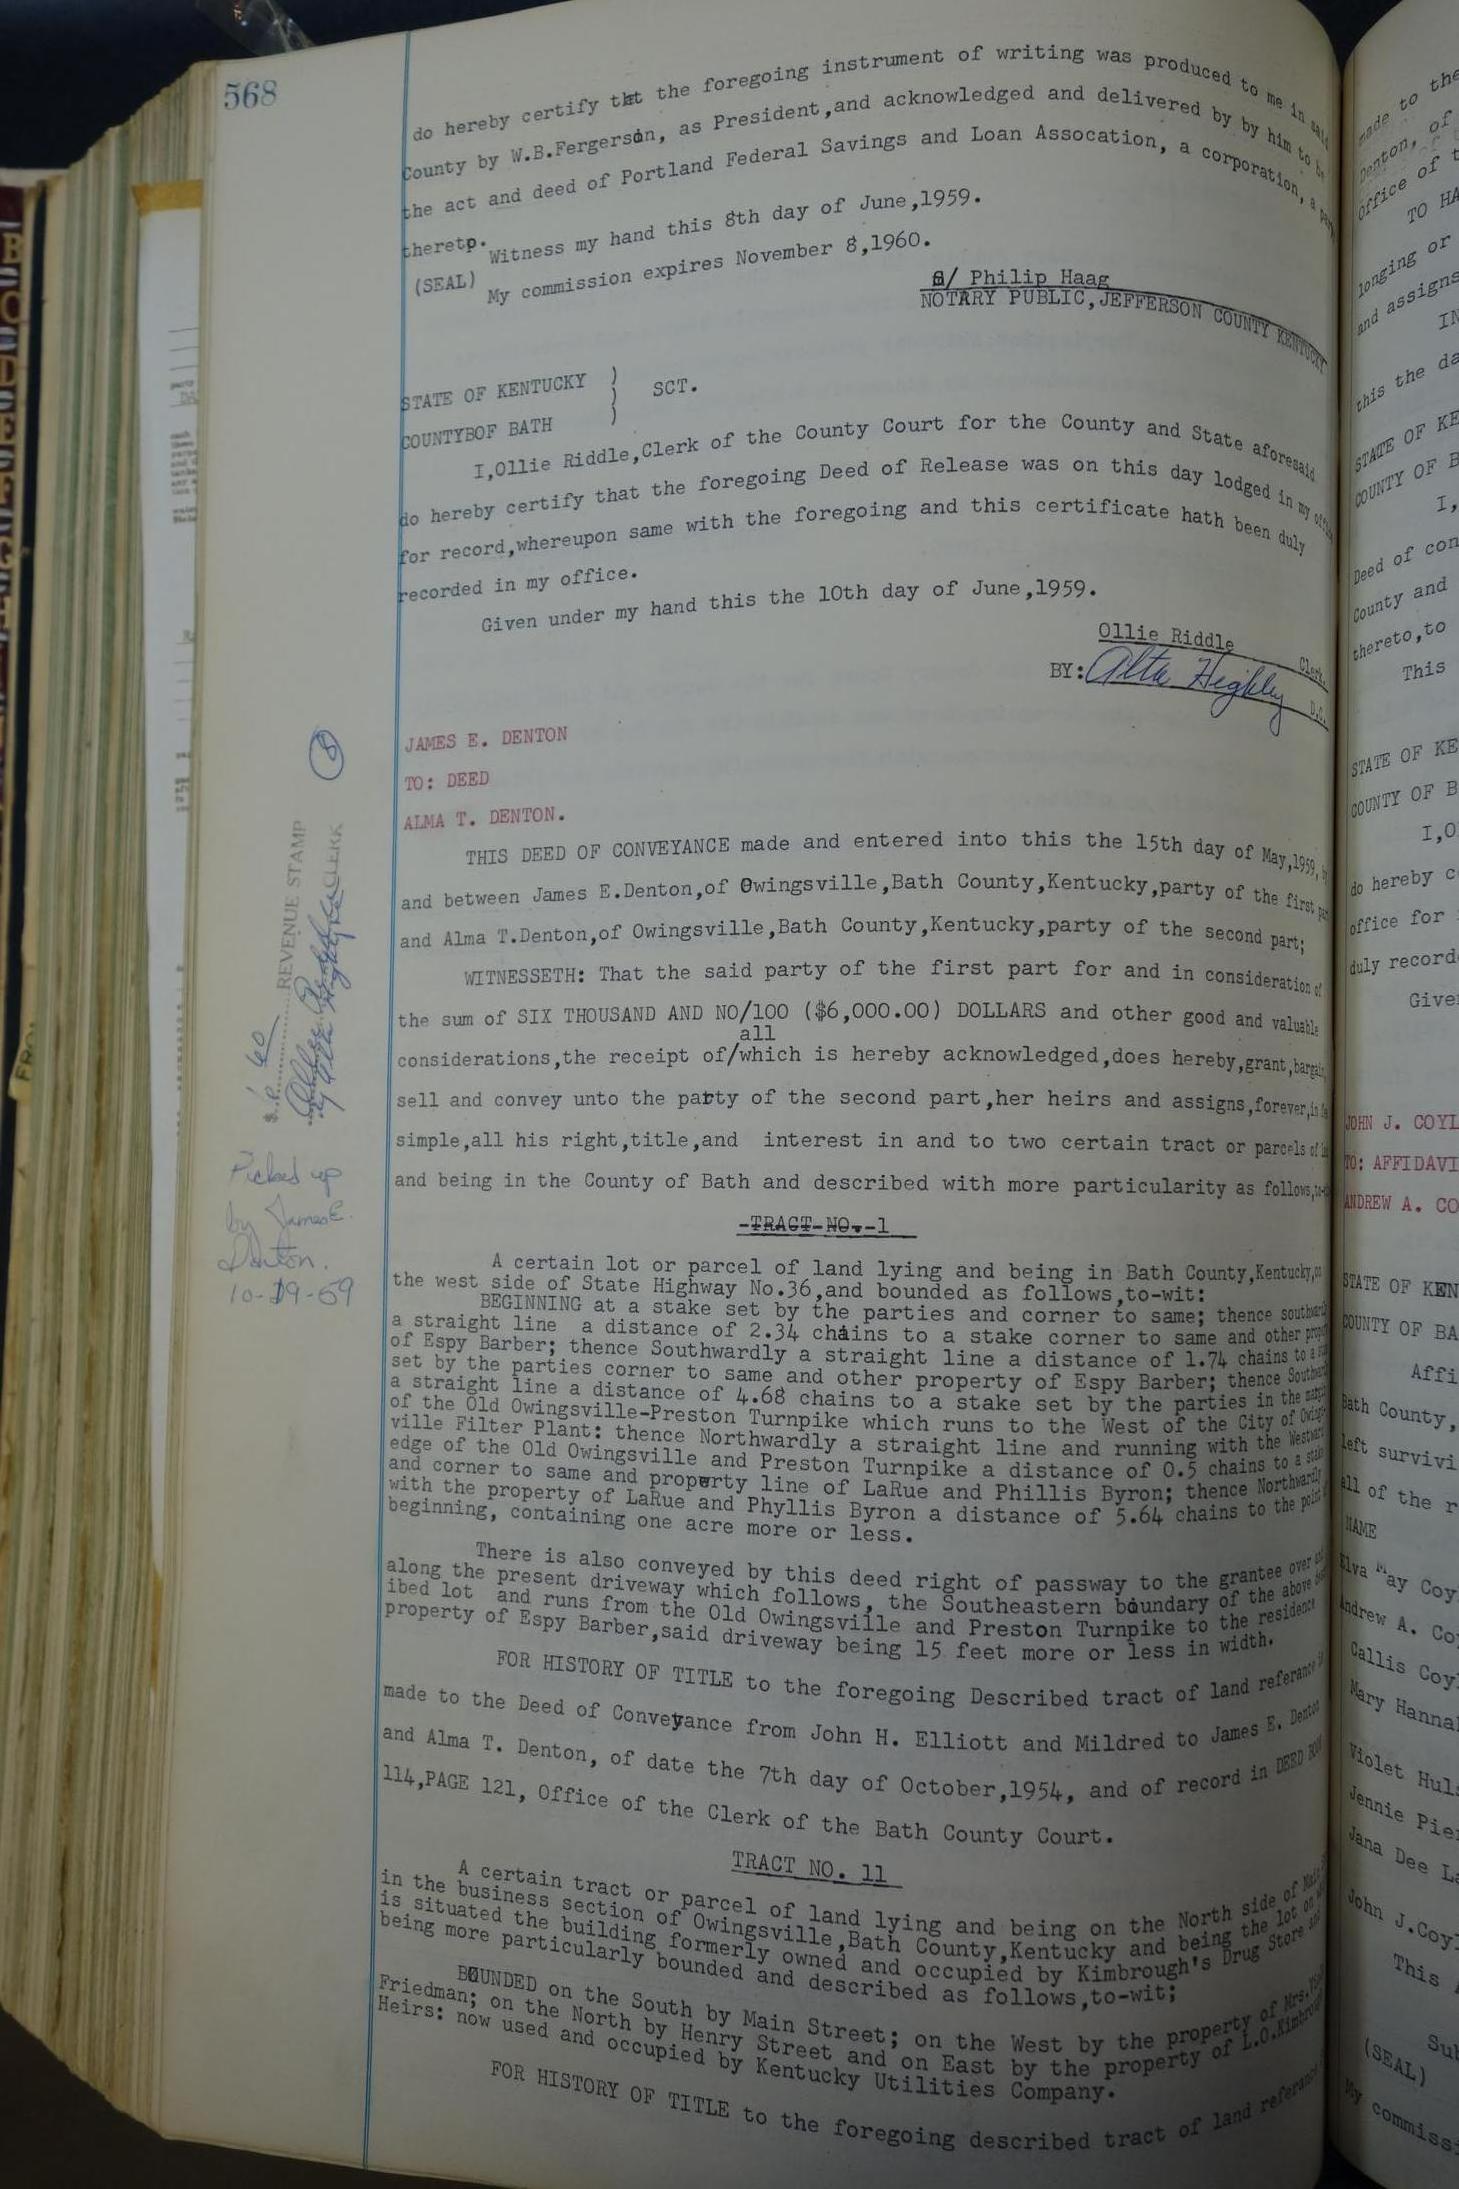 568
do hereby certify that the foregoing instrument of writing was produced to me in said
County by W.B.Fergerson, as President,and acknowledged and delivered by by him to be
the act and deed of Portland Federal Savings and Loan Assocation, a corporation, a party
thereto.
Witness my hand this 8th day of June,1959.
(SEAL) My commission expires November 8,1960.
s/ Philip Haag
NOTARY PUBLIC,JEFFERSON COUNTY KENTUCKY
STATE OF KENTUCKY )
) SCT.
COUNTYBOF BATH )
I,Ollie Riddle,Clerk of the County Court for the County and State aforesaid
do hereby certify that the foregoing Deed of Release was on this day lodged in my office
for record,whereupon same with the foregoing and this certificate hath been duly
recorded in my office.
Given under my hand this the 10th day of June,1959.
Ollie Riddle Clerk.
BY: Alta Highley D.C.
8
JAMES E. DENTON
TO: DEED
ALMA T. DENTON.
THIS DEED OF CONVEYANCE made and entered into this the 15th day of May,1959, by
and between James E.Denton,of Owingsville,Bath County,Kentucky,party of the first part
and Alma T.Denton,of Owingsville,Bath County,Kentucky,party of the second part;
WITNESSETH: That the said party of the first part for and in consideration of
the sum of SIX THOUSAND AND NO/100 ($6,000.00) DOLLARS and other good and valuable
all
considerations,the receipt of/which is hereby acknowledged,does hereby,grant,bargain,
sell and convey unto the party of the second part,her heirs and assigns,forever,in fee
simple,all his right,title,and interest in and to two certain tract or parcels of
and being in the County of Bath and described with more particularity as follows,
$ 6.60 REVENUE STAMP
Ollie Riddle CLERK
by Alta Highley
Picked up
by James E.
Denton.
10-19-59
-TRACT-NO.-1
A certain lot or parcel of land lying and being in Bath County,Kentucky,on
the west side of State Highway No.36,and bounded as follows,to-wit:
BEGINNING at a stake set by the parties and corner to same; thence southwardly
a straight line a distance of 2.34 chains to a stake corner to same and other property
of Espy Barber; thence Southwardly a straight line a distance of 1.74 chains to a
set by the parties corner to same and other property of Espy Barber; thence Southwardly
a straight line a distance of 4.68 chains to a stake set by the parties in the margin
of the Old Owingsville-Preston Turnpike which runs to the West of the City of Owings-
ville Filter Plant: thence Northwardly a straight line and running with the Westward
edge of the Old Owingsville and Preston Turnpike a distance of 0.5 chains to a stake
and corner to same and property line of LaRue and Phillis Byron; thence Northwardly
with the property of LaRue and Phyllis Byron a distance of 5.64 chains to the point of
beginning, containing one acre more or less.
There is also conveyed by this deed right of passway to the grantee over and
along the present driveway which follows, the Southeastern boundary of the above
ibed lot and runs from the Old Owingsville and Preston Turnpike to the residence
property of Espy Barber,said driveway being 15 feet more or less in width.
FOR HISTORY OF TITLE to the foregoing Described tract of land referance is
made to the Deed of Conveyance from John H. Elliott and Mildred to James E. Denton
and Alma T. Denton, of date the 7th day of October,1954, and of record in DEED BOOK
114,PAGE 121, Office of the Clerk of the Bath County Court.
TRACT NO. 11
A certain tract or parcel of land lying and being on the North side of Main
in the business section of Owingsville,Bath County,Kentucky and being the lot on
is situated the building formerly owned and occupied by Kimbrough's Drug Store and
being more particularly bounded and described as follows,to-wit;
BOUNDED on the South by Main Street; on the West by the property of Mrs.
Friedman; on the North by Henry Street and on East by the property of L.O.Kimbrough
Heirs: now used and occupied by Kentucky Utilities Company.
FOR HISTORY OF TITLE to the foregoing described tract of land referance
made to the
Denton, of
Office of t
TO HA
longing or
and assigns
IN
this the da
STATE OF KE
COUNTY OF B
I,
Deed of con
County and
thereto,to
This
STATE OF KE
COUNTY OF B
I,O
do hereby c
office for
duly record
Give
JOHN J. COYL
TO: AFFIDAVI
ANDREW A. CO
STATE OF KEN
COUNTY OF BA
Affi
Bath County,
left survivi
all of the r
NAME
Elva May Coy
Andrew A. Co
Callis Coy
Mary Hanna
Violet Huls
Jennie Pie
Jana Dee L
John J.Coy
This
Sub
(SEAL)
My commiss